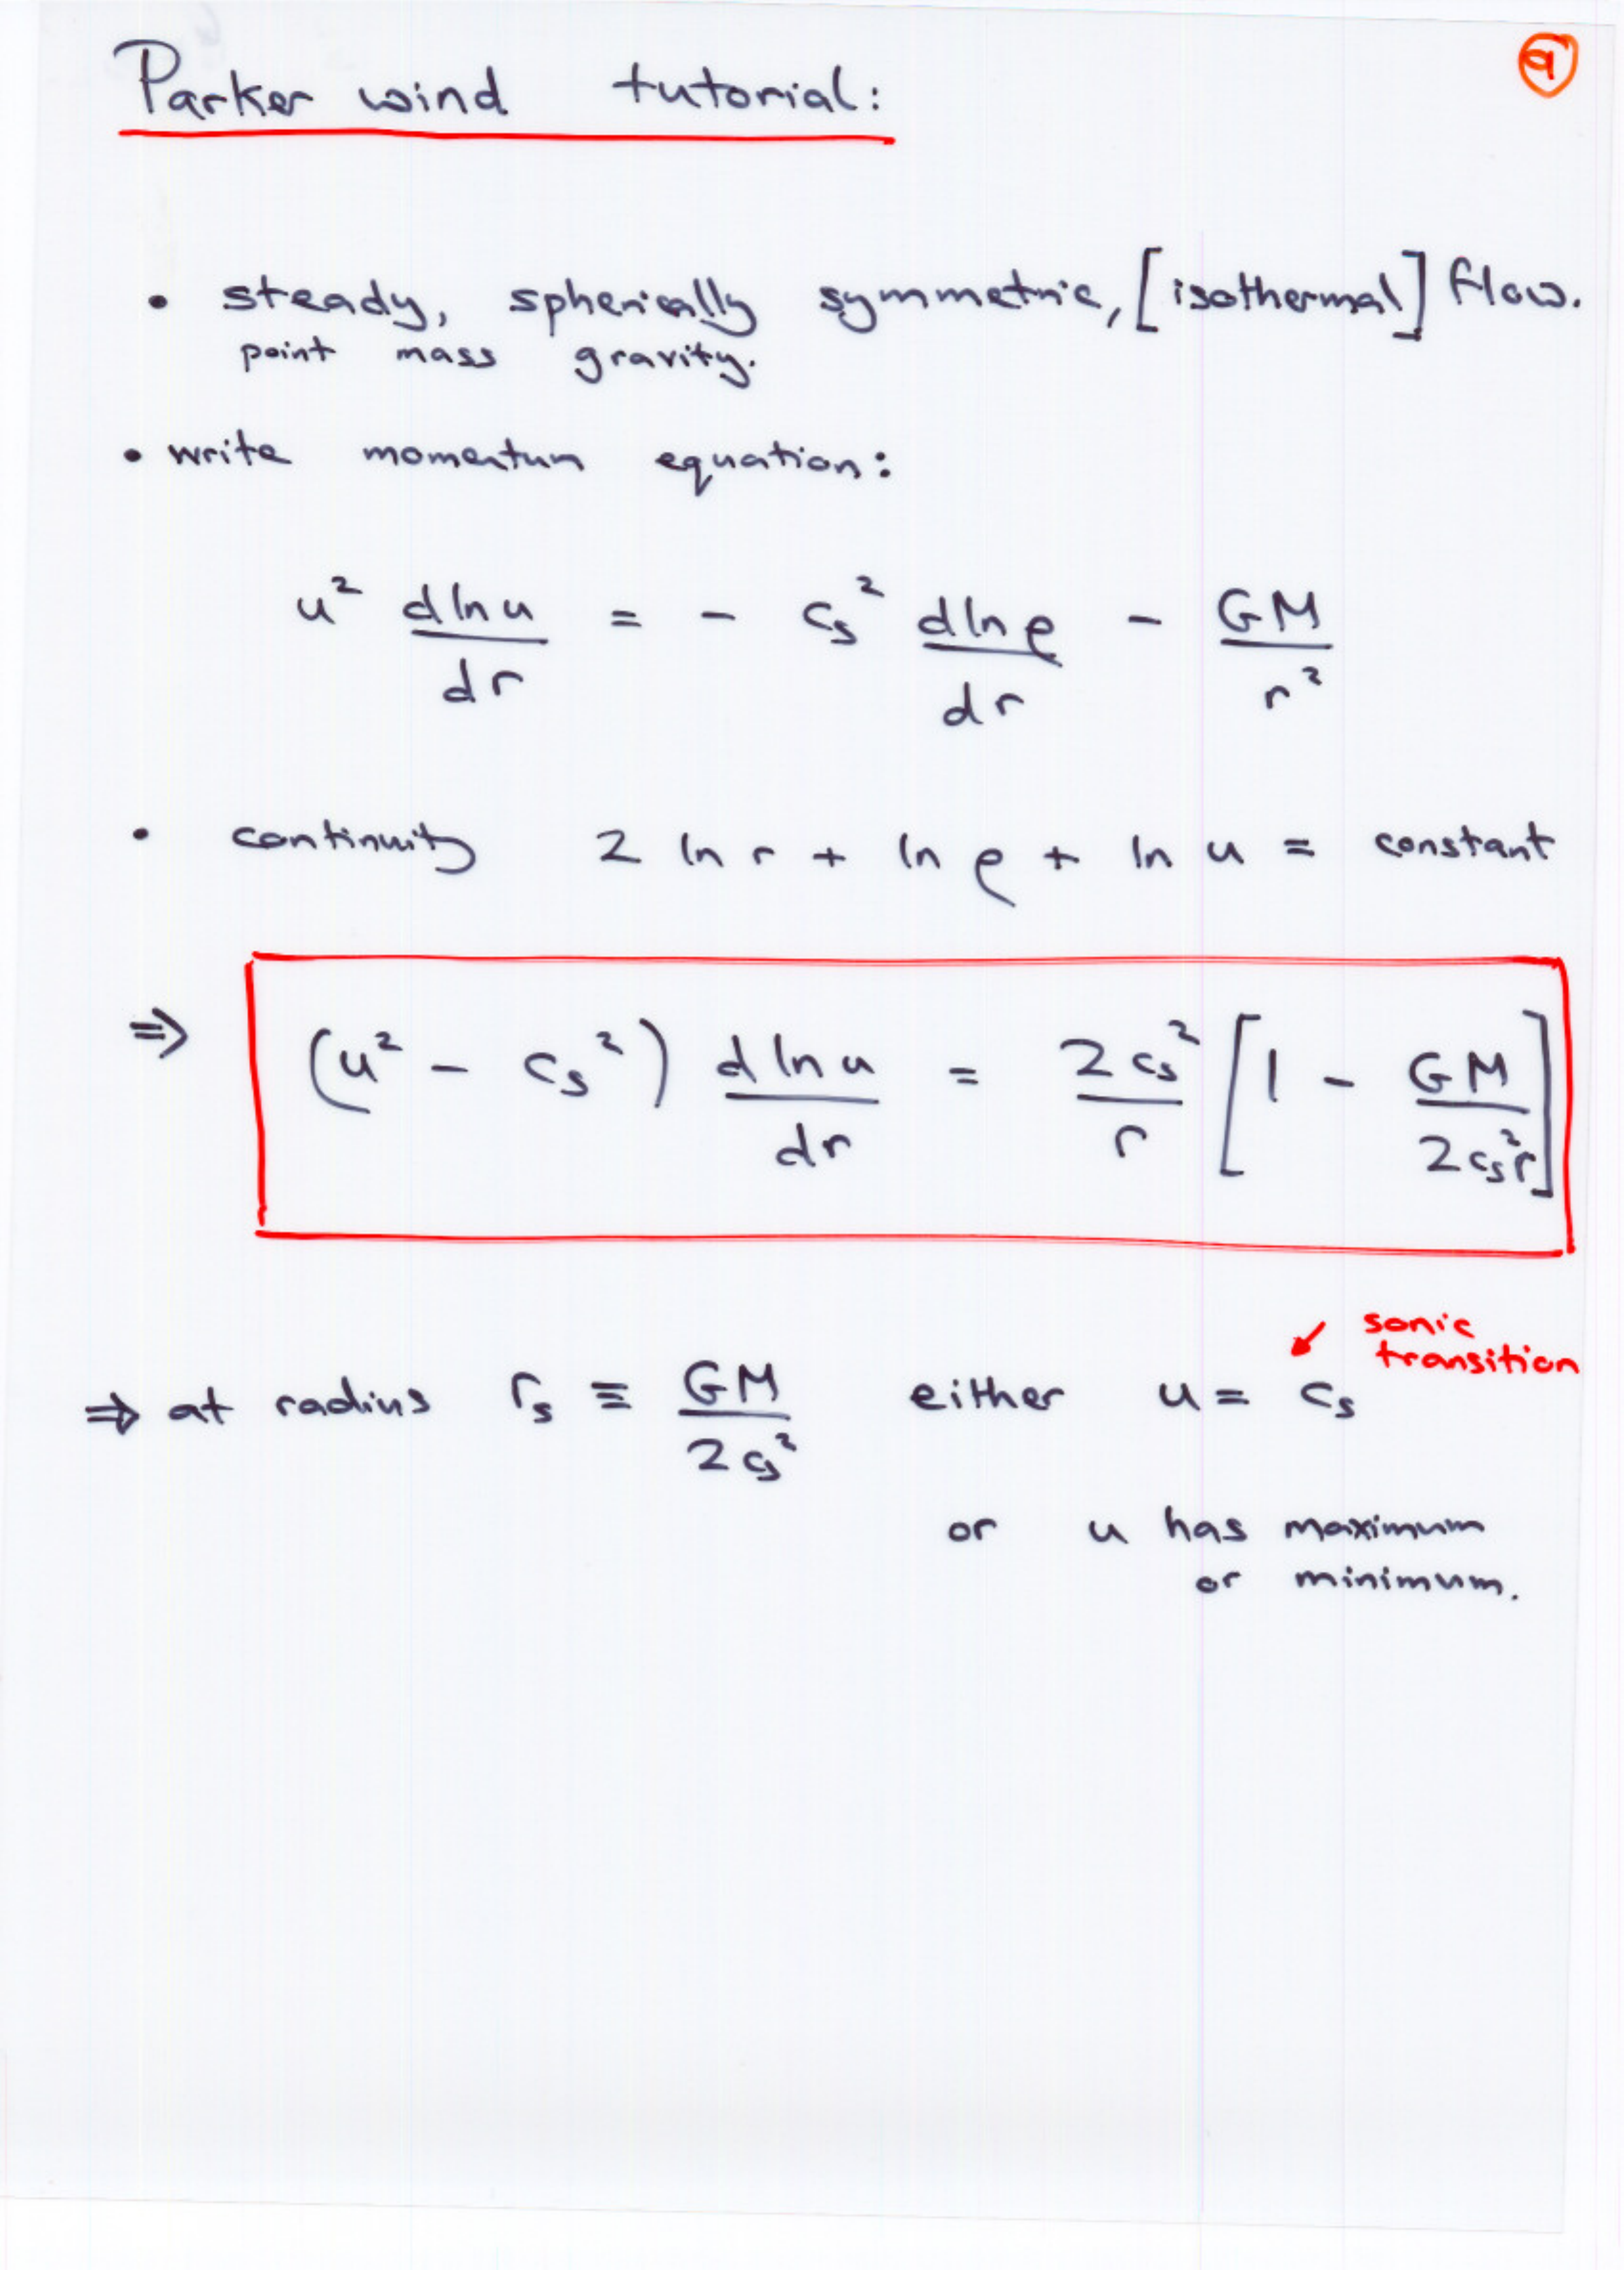 Parker wind tutorial:
9
• steady, spherically symmetric, [isothermal] flow.
point mass gravity.
• write momentum equation:
u² dln u/dr = - cₛ² dln ρ/dr - GM/r²
• continuity 2 ln r + ln ρ + ln u = constant
⇒ (u² - cₛ²) d ln u/dr = 2cₛ²/r [1 - GM/2cₛ²r]
sonic
transition
⇒ at radius rₛ ≡ GM/2cₛ² either u = cₛ
or u has maximum
or minimum.